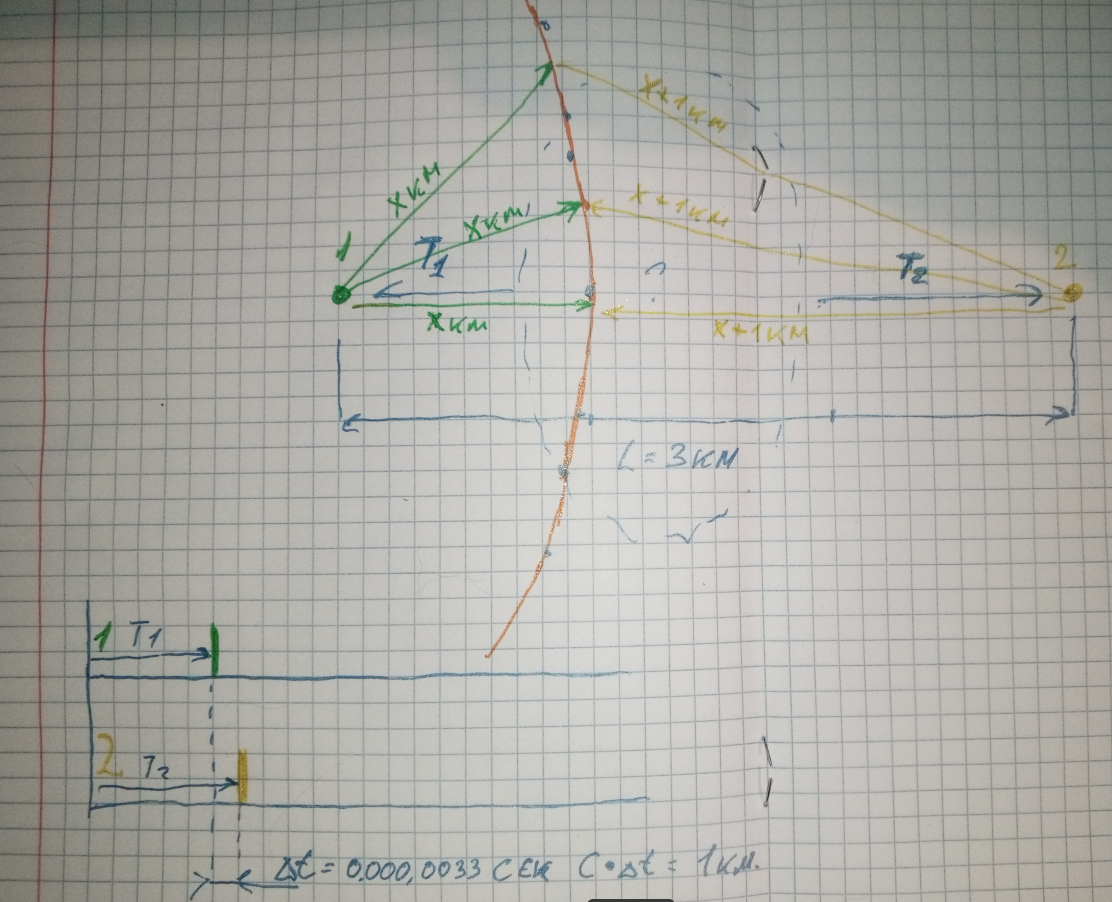 х+1км
хкм
хкм
х+1км
1
T1
T2
2
хкм
х+1км
L = 3км
1 T1
2 T2
Δt = 0,000,0033 сек C•Δt = 1км.